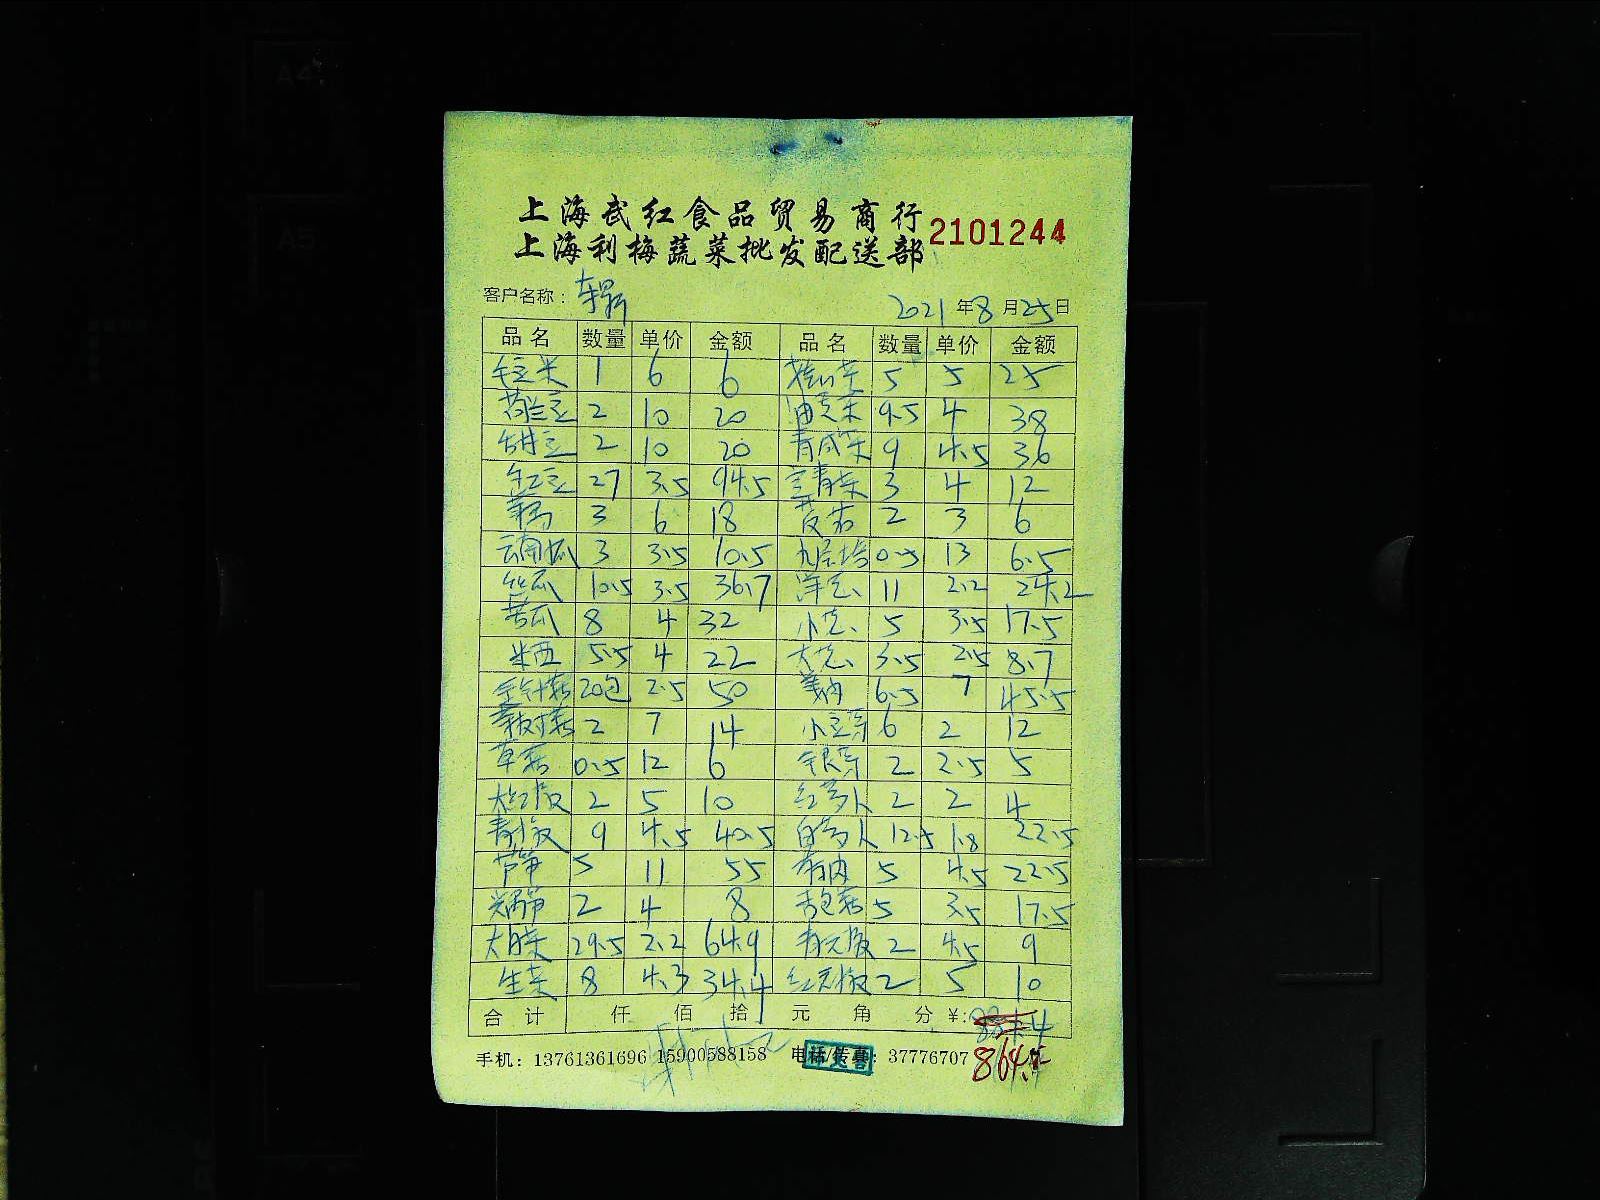 上海武红食品贸易商行
上海利梅蔬菜批发配送部
2101244
客户名称：
2021年8月25日
品名 数量 单价 金额 品名 数量 单价 金额
毛豆米 1 6 6 5 5 25
荷兰豆 2 10 20 油麦菜 9.5 4 38
甜豆 2 10 20 9 4.5 36
27 3.5 94.5 3 4 12
3 6 18 2 3 6
云南瓜 3 3.5 10.5 九层塔 0.5 13 6.5
丝瓜 10.5 3.5 36.7 洋葱 11 2.2 24.2
苦瓜 8 4 32 小葱 5 3.5 17.5
米西 5.5 4 22 大葱 3.5 2.5 8.7
金针菇 20包 2.5 50 6.5 7 45.5
2 7 14 小豆芽 6 2 12
草菇 0.5 12 6 银芽 2 2.5 5
大红椒 2 5 10 红萝卜 2 2 4
青椒 9 4.5 40.5 白萝卜 12.5 1.8 22.5
芦笋 5 11 55 5 4.5 22.5
2 4 8 5 3.5 17.5
大白菜 29.5 2.2 64.9 2 4.5 9
生菜 8 4.3 34.4 2 5 10
合计 仟 佰 拾 元 角 分 ¥:
手机：13761361696 15900588158 电话/传真：37776707